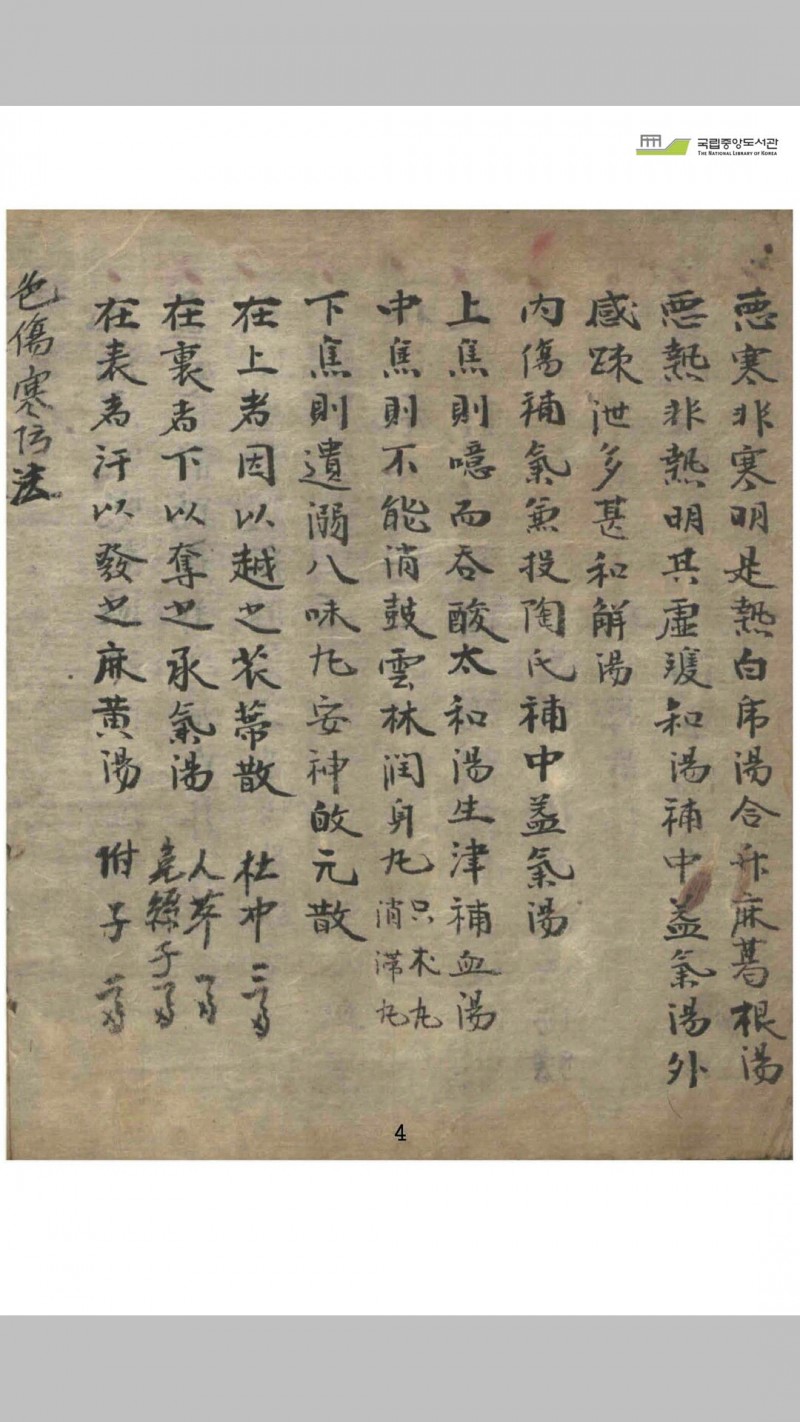 국립중앙도서관
THE NATIONAL LIBRARY OF KOREA
悪寒非寒明是熱白虎湯合升麻葛根湯
悪熱非熱明其虛 和湯補中益氣湯外
感踈泄多甚和解湯
內傷補氣兼投陶氏補中益氣湯
上焦則噫而吞酸太和湯生津補血湯
中焦則不能消鼓雲林潤身丸 只朮丸 消滯丸
下焦則遺溺八味丸安神 元散
在上者因以越之 蒂散 杜冲 二
在裏者下以奪之承氣湯 人 兎絲子
在表者汗以發之麻黄湯 附子 一
色傷寒 法
4